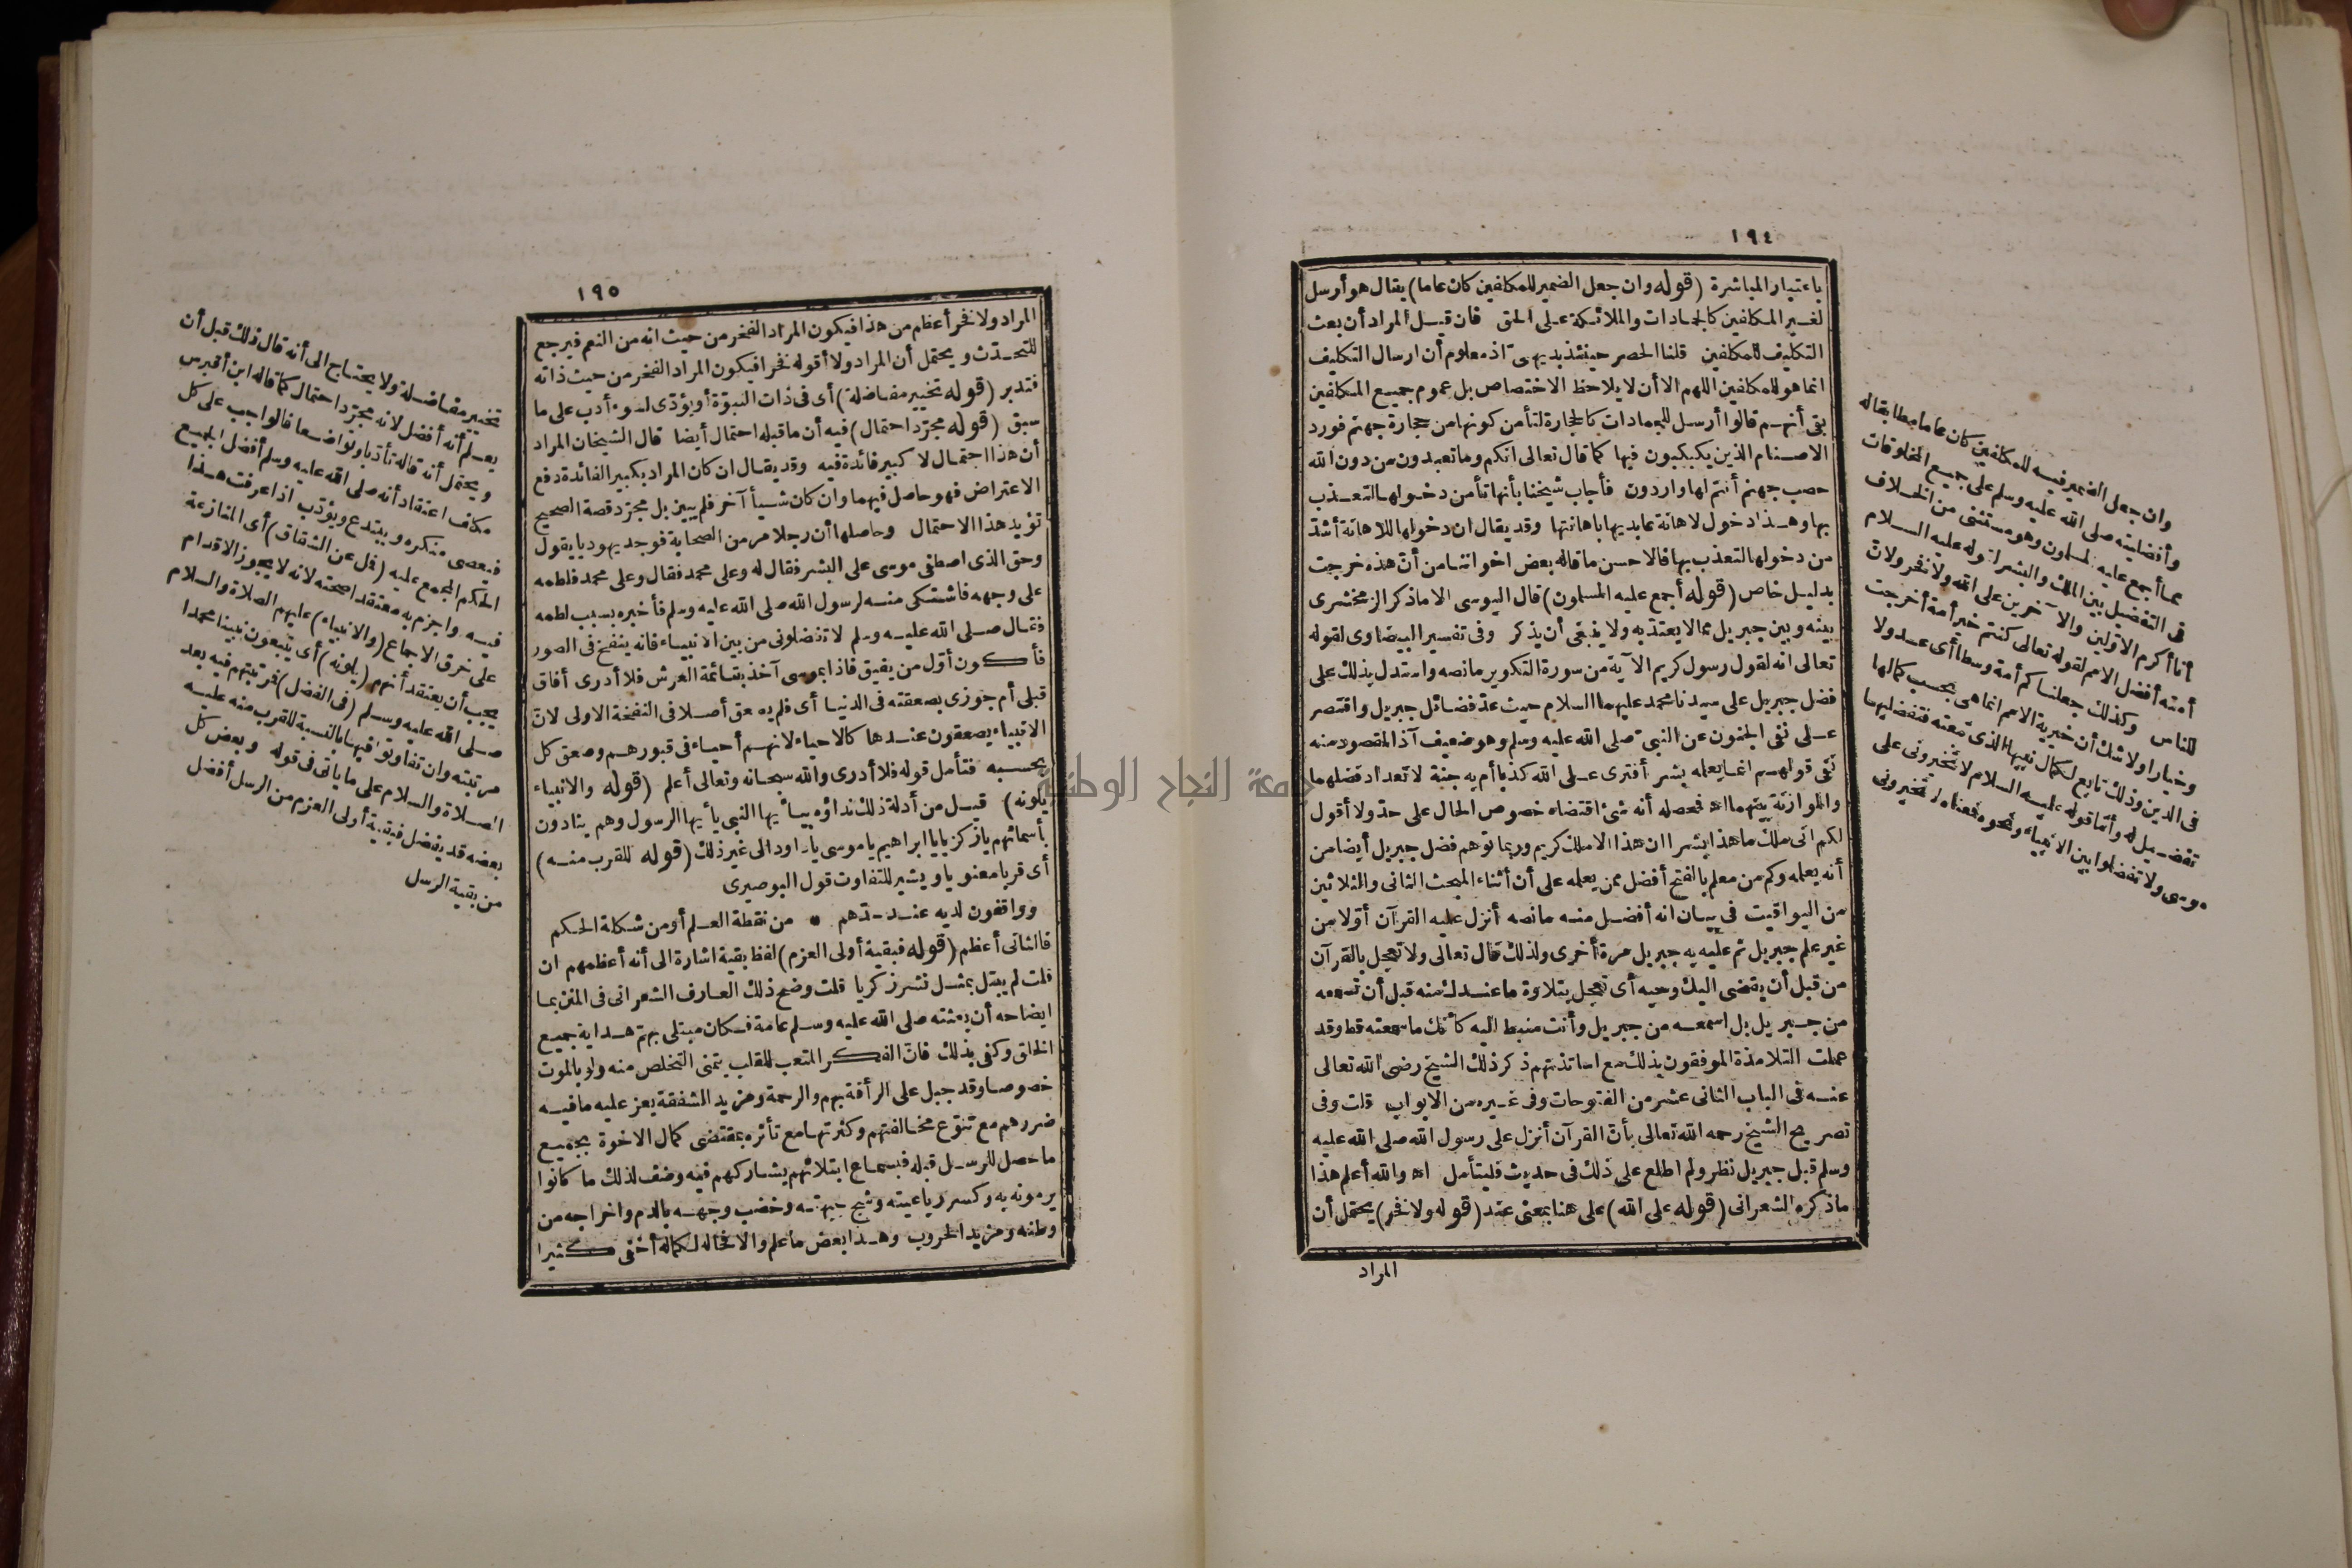 ١٩٤
باعتبار المباشرة (قوله وان جعل الضمير للمكلفين كان عاما) يقال هو أرسل
لغير المكلفين كالجمادات والملائكة على الحق فان قيل المراد أن بعث
التكليف للمكلفين قلنا الحصر حينئذ بديهى اذ معلوم أن ارسال التكليف
انما هو للمكلفين اللهم الا أن لا يلاحظ الاختصاص بل عموم جميع المكلفين
بقى أنهم قالوا أرسل للجمادات كالحجارة لتأمن كونها من حجارة جهنم فورد
الاصنام الذين يكبكبون فيها كما قال تعالى انكم وما تعبدون من دون الله
حصب جهنم أنتم لها واردون فأجاب شيخنا بأنها تأمن دخولها لتعذب
بها وهذا دخول لاهانة عابديها باهانتها وقد يقال ان دخولها للاهانة أشد
من دخولها لتعذب بها فالاحسن ما قاله بعض اخواننا من أن هذه خرجت
بدليل خاص (قوله أجمع عليه المسلمون) قال اليوسى الا ما ذكر الزمخشرى
بينه وبين جبريل مما لا يعتد به ولا ينبغى أن يذكر وفى تفسير البيضاوى لقوله
تعالى انه لقول رسول كريم الآية من سورة التكوير ما نصه واستدل بذلك على
فضل جبريل على سيدنا محمد عليهما السلام حيث عد فضائل جبريل واقتصر
على نفى الجنون عن النبى صلى الله عليه وسلم وهو ضعيف اذ المقصود منه
نفى قولهم انما يعلمه بشر أفترى على الله كذبا أم به جنة لا تعداد فضلهما
والموازنة بينهما اه فمحصله أنه شئ اقتضاه خصوص الحال على حد ولا أقول
لكم انى ملك ما هذا بشرا ان هذا الا ملك كريم وربما توهم فضل جبريل أيضا من
أنه يعلمه وكم من معلم بالفتح أفضل ممن يعلمه على أن أثناء المبحث الثانى والثلاثين
من اليواقيت فى بيان انه أفضل منه ما نصه أنزل عليه القرآن أولا من
غير علم جبريل ثم عليه به جبريل مرة أخرى ولذلك قال تعالى ولا تعجل بالقرآن
من قبل أن يقضى اليك وحيه أى تعجل بتلاوة ما عندك منه قبل أن تسمعه
من جبريل بل اسمعه من جبريل وأنت منبط اليه كأنك ما سمعته قط وقد
عملت التلامذة الموفقون بذلك مع اساتذتهم ذكر ذلك الشيخ رضى الله تعالى
عنه فى الباب الثانى عشر من الفتوحات وفى غيره من الابواب قلت وفى
تصريح الشيخ رحمه الله تعالى بأن القرآن أنزل على رسول الله صلى الله عليه
وسلم قبل جبريل نظر ولم اطلع على ذلك فى حديث فليتأمل اه والله أعلم هذا
ما ذكره الشعرانى (قوله على الله) على هنا بمعنى عند (قوله ولا فخر) يحتمل أن
المراد
وان جعل الضمير فيه للمكلفين كان عاما مطابقا له
وأفضليته صلى الله عليه وسلم على جميع المخلوقات
مما أجمع عليه المسلمون وهو مستثنى من الخلاف
فى التفضيل بين الملك والبشر لقوله عليه السلام
أنا أكرم الاولين والآخرين على الله ولا فخر ولان
أمته أفضل الامم لقوله تعالى كنتم خير أمة أخرجت
للناس وكذلك جعلناكم أمة وسطا أى عدولا
وخيارا ولا شك أن خيرية الامم انما هى بحسب كمالها
فى الدين وذلك تابع لكمال نبيها الذى تتبعه فتفضيلها
تفضيل له وأما قوله عليه السلام لا تخيرونى على
موسى ولا تفضلوا بين الانبياء ونحوه فمعناه لا تخيرونى
١٩٥
المراد ولا فخر أعظم من هذا فيكون المراد الفخر من حيث انه من النعم فيرجع
للتحدث ويحتمل أن المراد ولا أقوله فخرا فيكون المراد الفخر من حيث ذاته
فتدبر (قوله تخيير مفاضلة) أى فى ذات النبوة أو يؤدى لسوء أدب على ما
سبق (قوله مجرد احتمال) فيه أن ما قبله احتمال أيضا قال الشيخان المراد
أن هذا احتمال لا كبير فائدة فيه وقد يقال ان كان المراد بكبير الفائدة دفع
الاعتراض فهو حاصل فيهما وان كان شيأ آخر فلم يبين بل مجرد قصة الصحيح
تؤيد هذا الاحتمال وحاصلها أن رجلا مر من الصحابة فوجد يهوديا يقول
وحق الذى اصطفى موسى على البشر فقال له وعلى محمد فقال وعلى محمد فلطمه
على وجهه فاشتكى منه لرسول الله صلى الله عليه وسلم فأخبره بسبب لطمه
فقال صلى الله عليه وسلم لا تفضلونى من بين الانبياء فانه ينفخ فى الصور
فأكون أول من يفيق فاذا بموسى آخذ بقائمة العرش فلا أدرى أفاق
قبلى أم جوزى بصعقته فى الدنيا أى فلم يصعق أصلا فى النفخة الاولى لان
الانبياء يصعقون عندها كالاحياء لانهم أحياء فى قبورهم وصعق كل
بحسبه فتأمل قوله فلا أدرى والله سبحانه وتعالى أعلم (قوله والانبياء
يلونه) قيل من أدلة ذلك نداؤه بيا أيها النبى يا أيها الرسول وهم ينادون
بأسمائهم يا زكريا يا ابراهيم يا موسى يا داود الى غير ذلك (قوله للقرب منه)
أى قربا معنويا ويشير للتفاوت قول البوصيرى
وواقفون لديه عند حدهم • من نقطة العلم أو من شكلة الحكم
فالثانى أعظم (قوله فبقية أولى العزم) لفظ بقية اشارة الى أنه أعظمهم ان
قلت لم يبتل بمثل نشر زكريا قلت وضح ذلك العارف الشعرانى فى المنن بما
ايضاحه أن بعثته صلى الله عليه وسلم عامة فكان مبتلى بهم هداية جميع
الخلق وكفى بذلك فان الفكر المتعب للقلب يتمنى التخلص منه ولو بالموت
خصوصا وقد جبل على الرأفة بهم والرحمة ومزيد الشفقة يعز عليه ما فيه
ضررهم مع تنوع مخالفتهم وكثرتها مع تأثره بمقتضى كمال الاخوة بجميع
ما حصل للرسل قبله فبسماع ابتلائهم يشاركهم فيه وضف لذلك ما كانوا
يرمونه به وكسر رباعيته وشج جبهته وخضب وجهه بالدم واخراجه من
وطنه ومزيد الحروب وهذا بعض ما علم والا فحاله لكماله أخفى كثيرا
تخيير مفاضلة ولا يحتاج الى أنه قال ذلك قبل أن
يعلم أنه أفضل لانه مجرد احتمال كما قاله ابن أقبرس
ويحتمل أنه قاله تأدبا وتواضعا فالواجب على كل
مكلف اعتقاد أنه صلى الله عليه وسلم أفضل الجميع
فيعصى منكره ويبتدع ويؤدب اذا عرفت هذا
الحكم المجمع عليه (فمل عن الشقاق) أى المنازعة
فيه واجزم به معتقدا صحته لانه لا يجوز الاقدام
على خرق الاجماع (والانبيا) عليهم الصلاة والسلام
يجب أن يعتقد أنهم (يلونه) أى يتبعون نبينا محمدا
صلى الله عليه وسلم (فى الفضل) فمرتبتهم فيه بعد
مرتبته وان تفاوتوا فيها بالنسبة للقرب منه عليه
الصلاة والسلام على ما يأتى فى قوله وبعض كل
بعضه قد يفضل فبقية أولى العزم من الرسل أفضل
من بقية الرسل
جامعة النجاح الوطنية